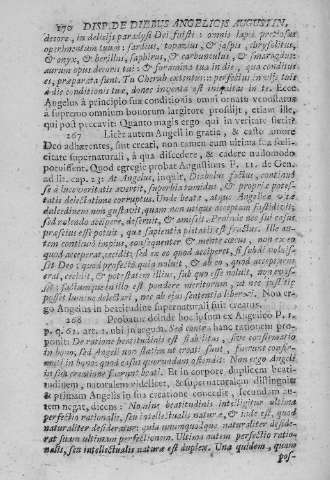 270 DISP. DE DIEBUS ANGELICIS AUGUSTIN.
decore, in deliciis paradysi Dei fuisti: omnis lapis pretiosus
operimentum tuum: sardius, topazius, & jaspis, chrysolitus,
& onyx, & berillus, saphirus, & carbunculus, & smaragdus:
aurum opus decoris tui: & foramina tua in die, qua conditus
es, præparata sunt. Tu Cherub extentus: perfectus in viis tuis
à die conditionis tuæ, donec inventa est iniquitas in te. Ecce
Angelus à principio suæ conditionis omni ornatu venustatus
à supremo omnium bonorum largitore prosilijt, etiam ille,
qui post peccavit. Quanto magis ergo qui in veritate stetit?
267 Licèt autem Angeli in gratia, & casto amore
Deo adhærentes, sint creati, non tamen cum ultima sua fœli-
citate supernaturali, à qua discedere, & cadere nullomodo
potuissent. Quod egregiè probat Augustinus P. 11. de Gen.
ad lit. cap. 23: At Angelus, inquit, Diabolus factus, continuò
se à luce veritatis avertit, superbia tumidus, & propriæ potes-
tatis delectatione corruptus. Unde beatæ, atque Angelicæ vitæ
dulcedinem non gustavit, quam non utique acceptam fastidivit,
sed nolendo accipere, deseruit, & amisit. Proinde nec sui casus
præscius esse potuit, quia sapientia pietatis est fructus. Ille au-
tem continuò impius, consequenter & mente cœcus, non ex eo
quod acceperat, cecidit; sed ex eo quod acciperet, si subdi voluis-
set Deo: quod profectò quia noluit, & ab eo, quod accepturus
erat, cecidit, & potestatem illius, sub quo esse noluit, non evasit
Non er-
go Angelus in beatitudine supernaturali fuit creatus.
268 Probatur deinde hoc ipsum ex Angelico P. 1.
p. q. 62. art. 1. ubi in argum. Sed contra hanc rationem pro-
ponit: De ratione beatitudinis est stabilitas, sive confirmatio
in bono, sed Angeli non statim ut creati sunt, fuerunt confir-
mati in bono quod casus quorundam ostendit. Non ergo Angeli
in sua creatione fuerunt beati. Et in corpore duplicem beati-
tudinem, naturalem videlicet, & supernaturalem distinguit,
& primam Angelis in sua creatione concedit, secundam au-
tem negat, dicens: Nomine beatitudinis intelligitur ultima
perfectio rationalis, seu intellectualis naturæ, & inde est, quod
naturaliter desideratur: quia unumquodque naturaliter deside-
rat suam ultimam perfectionem. Ultima autem perfectio ratio-
nalis, seu intellectualis naturæ est duplex. Una quidem, quam
pos-